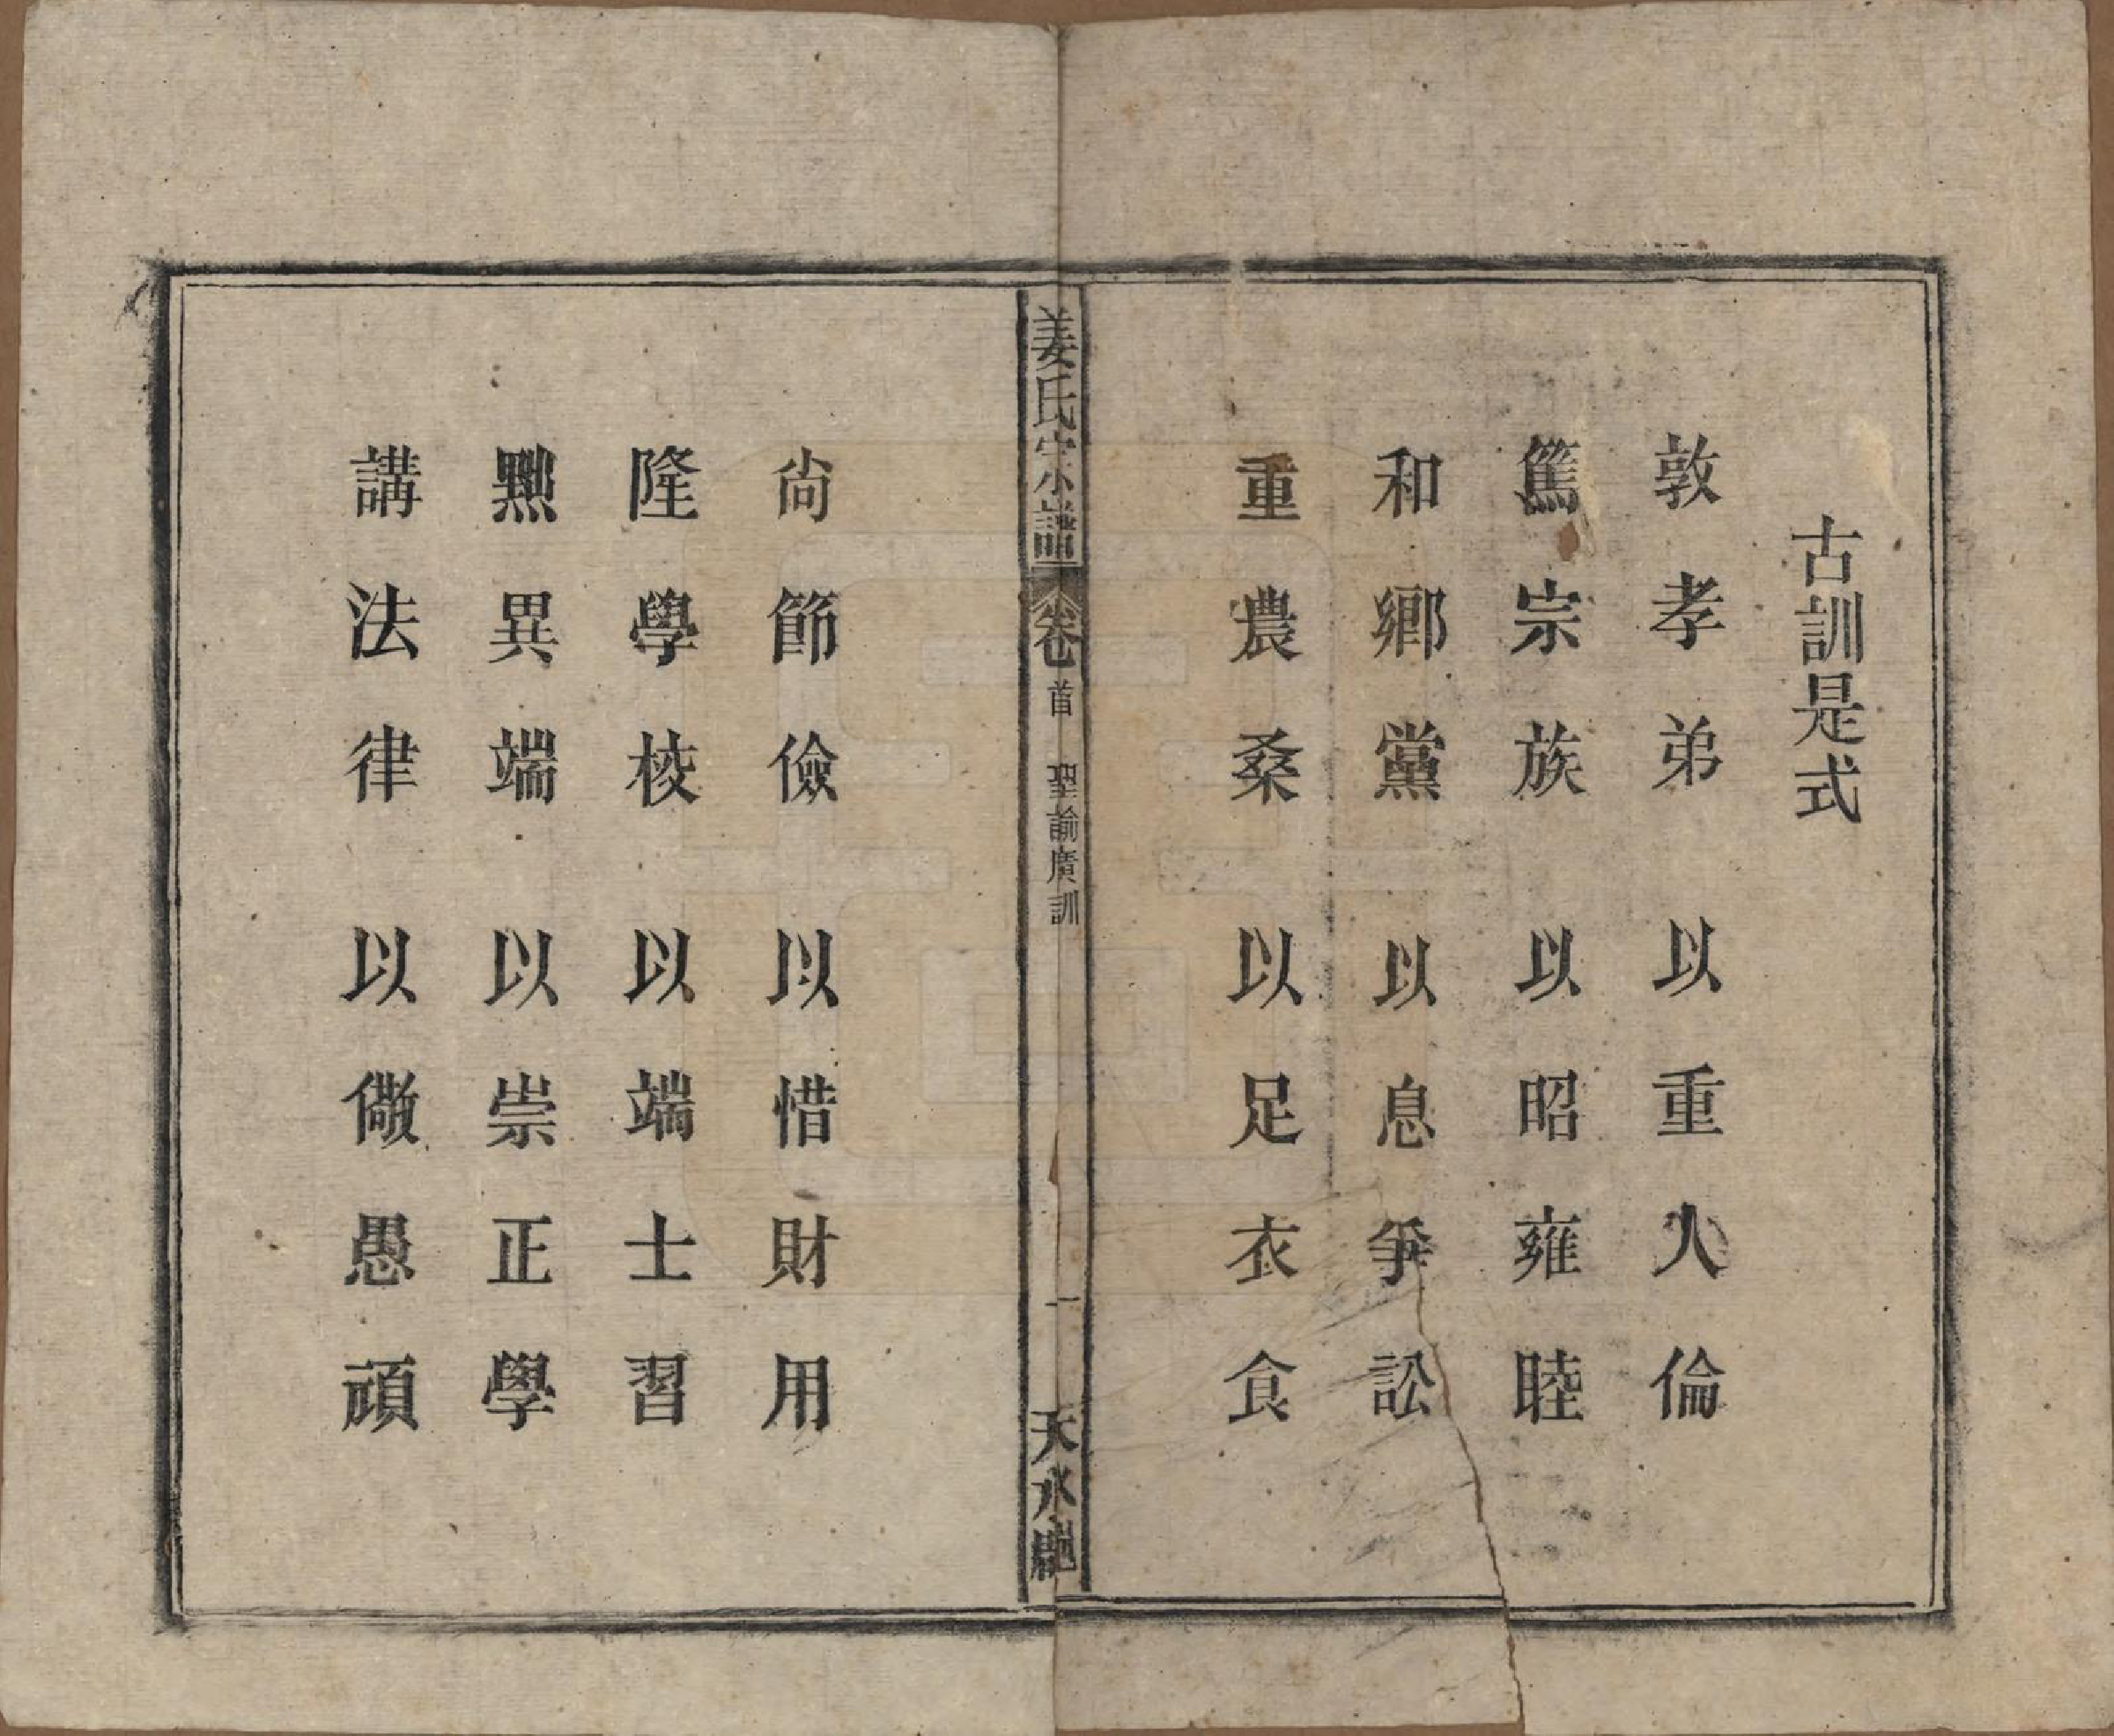 古訓是式
敦孝弟以重人倫
篤宗族以昭雍睦
和鄉黨以息爭訟
重農桑以足衣食
姜氏宗譜 卷首 聖諭廣訓 一 天水郡
尚節儉以惜財用
隆學校以端士習
黜異端以崇正學
講法律以儆愚頑